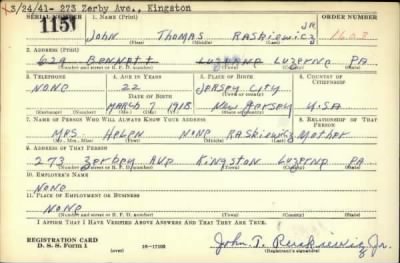 3/24/41- 273 Zerby Ave., Kingston
SERIAL NUMBER 1. NAME (Print) ORDER NUMBER
115 John Thomas Raskiewicz JR 1608
(First) (Middle) (Last)
2. ADDRESS (Print)
629 Bennett Luzerne Luzerne PA.
(Number and street or R. F. D. number) (Town) (County) (State)
3. TELEPHONE 4. AGE IN YEARS 5. PLACE OF BIRTH 6. COUNTRY OF CITIZENSHIP
None 22 Jersey City
DATE OF BIRTH
March 7 1918 New Jersey U.S.A
(Exchange) (Number) (Mo.) (Day) (Yr.) (State or country)
7. NAME OF PERSON WHO WILL ALWAYS KNOW YOUR ADDRESS 8. RELATIONSHIP OF THAT PERSON
Mrs. Helen None Raskiewicz Mother
(Mr., Mrs., Miss) (First) (Middle) (Last)
9. ADDRESS OF THAT PERSON
273 Zerbey Ave Kingston Luzerne PA
(Number and street or R. F. D. number) (Town) (County) (State)
10. EMPLOYER'S NAME
None
11. PLACE OF EMPLOYMENT OR BUSINESS
None
(Number and street or R. F. D. number) (Town) (County) (State)
I AFFIRM THAT I HAVE VERIFIED ABOVE ANSWERS AND THAT THEY ARE TRUE.
REGISTRATION CARD
D. S. S. Form 1 (over) 16-17105 John T. Raskiewicz Jr.
(Registrant's signature)